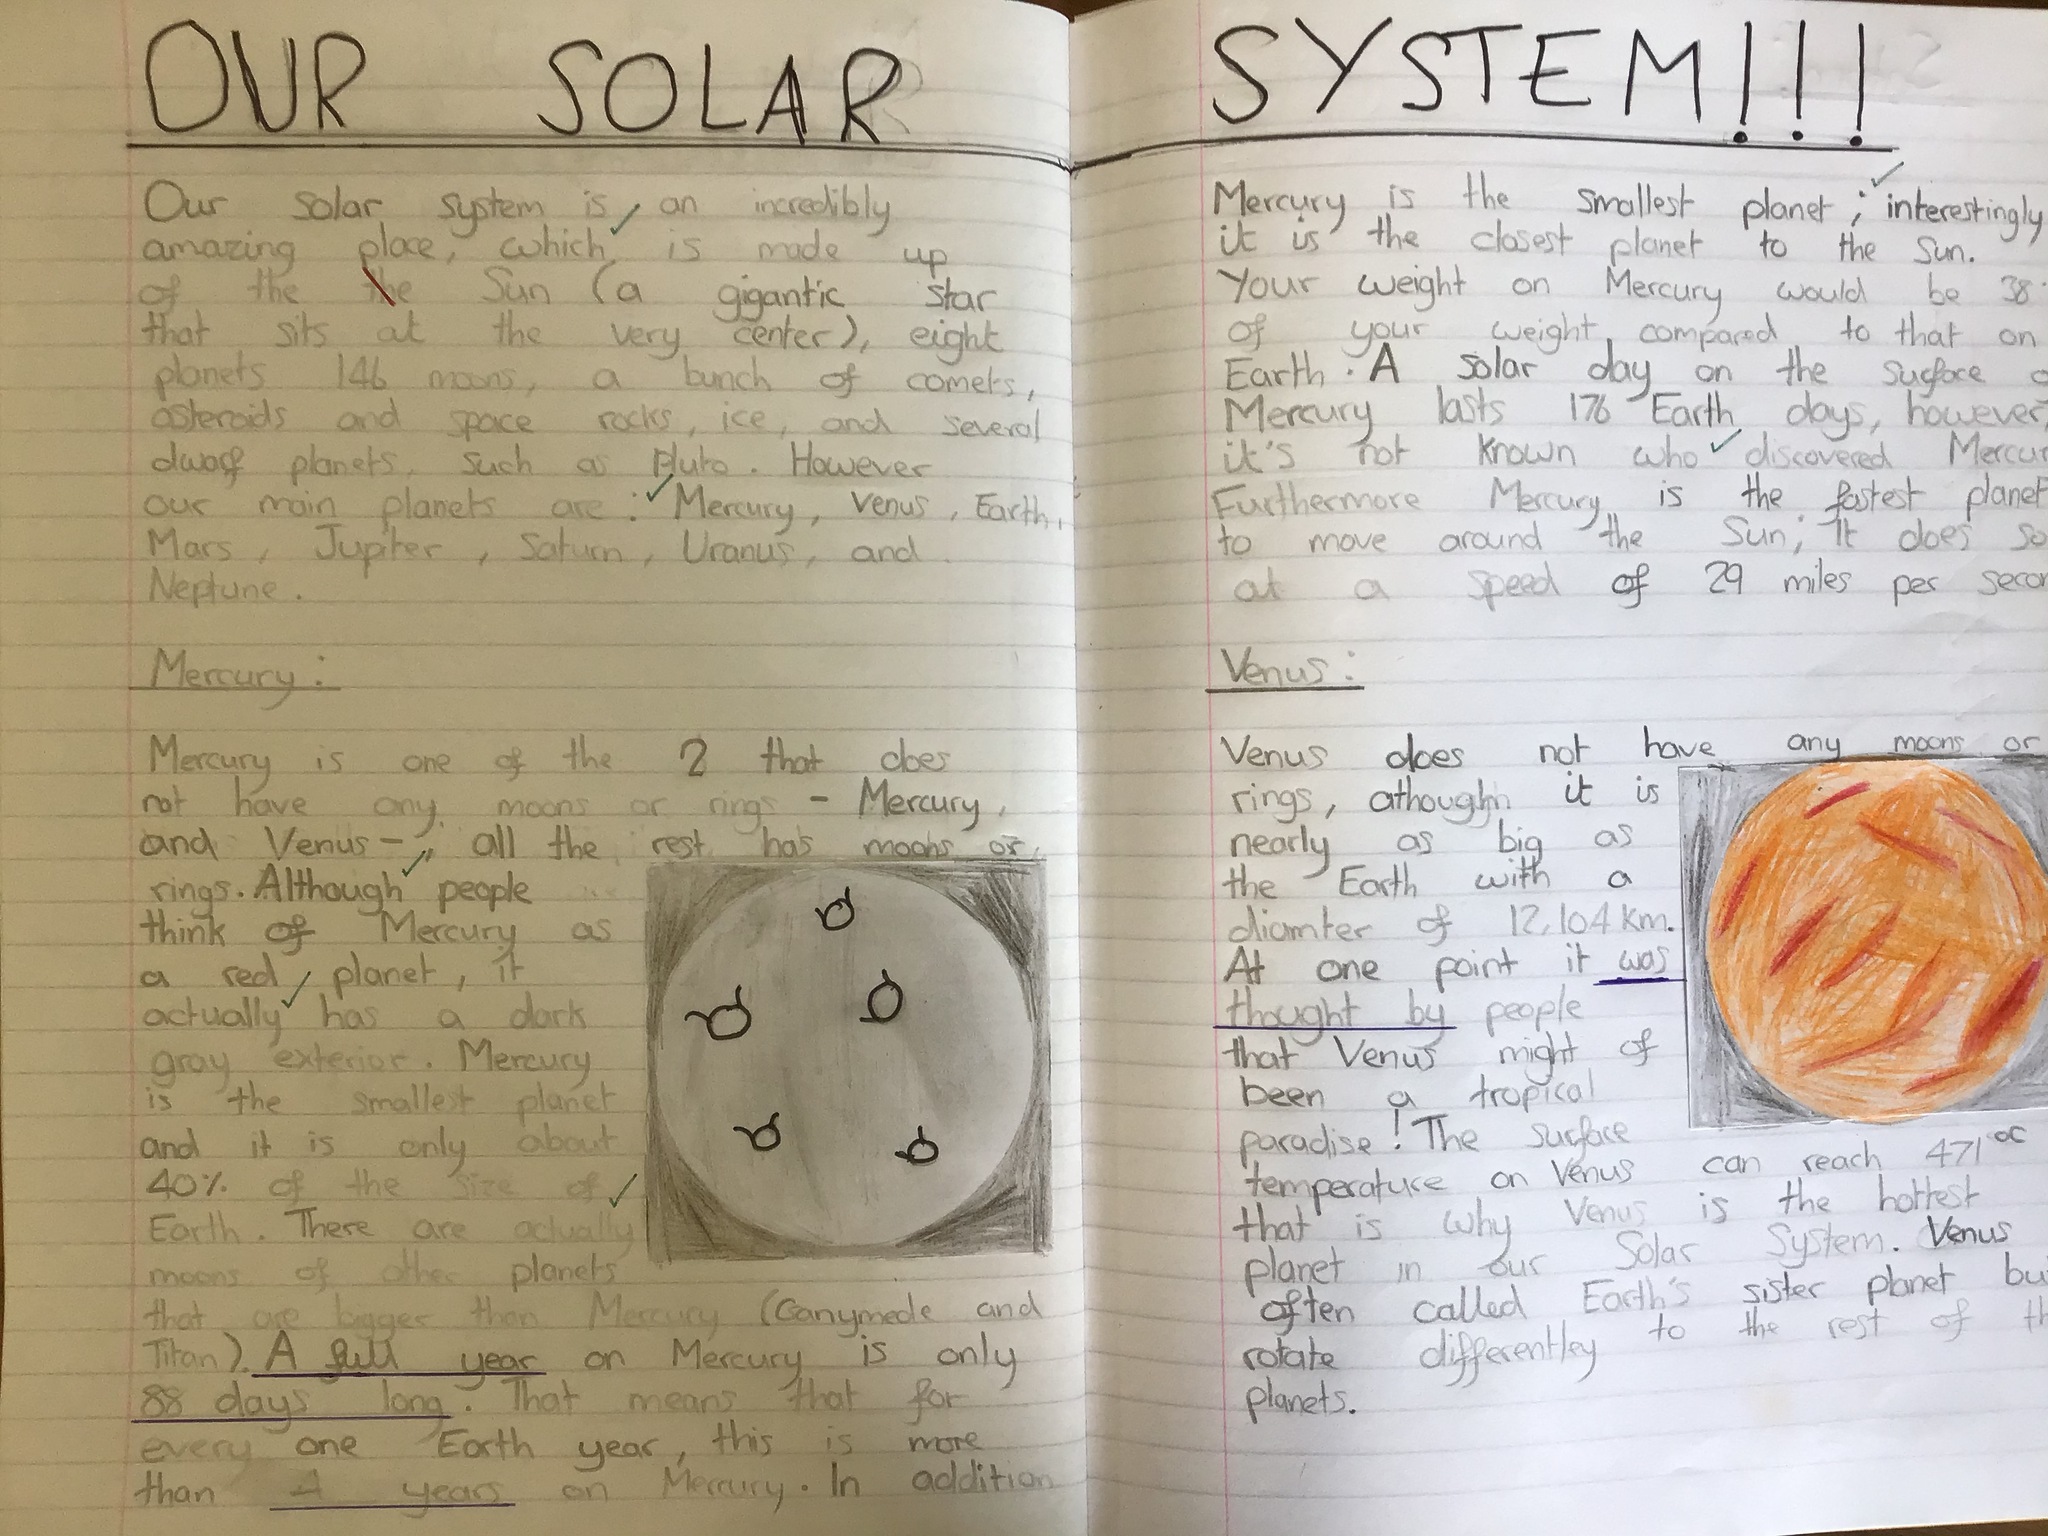 OUR SOLAR SYSTEM!!!
Our solar system is an incredibly
amazing place, which is made up
of the the Sun (a gigantic star
that sits at the very center), eight
planets 146 moons, a bunch of comets,
asteroids and space rocks, ice, and several
dwarf planets, such as Pluto. However
our main planets are: Mercury, Venus, Earth,
Mars, Jupiter, Saturn, Uranus, and
Neptune.
Mercury:
Mercury is one of the 2 that does
not have any moons or rings - Mercury,
and Venus-; all the rest has moons or
rings. Although people
think of Mercury as
a red planet, it
actually has a dark
gray exterior. Mercury
is the smallest planet
and it is only about
40% of the size of
Earth. There are actually
moons of other planets
that are bigger than Mercury (Ganymede and
Titan). A full year on Mercury is only
88 days long. That means that for
every one Earth year, this is more
than 4 years on Mercury. In addition
Mercury is the smallest planet; interestingly
it is the closest planet to the Sun.
Your weight on Mercury would be 38
of your weight compared to that on
Earth. A solar day on the surface o
Mercury lasts 176 Earth days, however,
it's not known who discovered Mercur
Furthermore Mercury is the fastest planet
to move around the Sun; It does so
at a speed of 29 miles per secon
Venus:
Venus does not have any moons or
rings, athoughn it is
nearly as big as
the Earth with a
diamter of 12,104 km.
At one point it was
thought by people
that Venus might of
been a tropical
paradise! The surface
temperature on Venus can reach 471°C
that is why Venus is the hottest
planet in our Solar System. Venus
often called Earth's sister planet but
rotate differentley to the rest of th
planets.